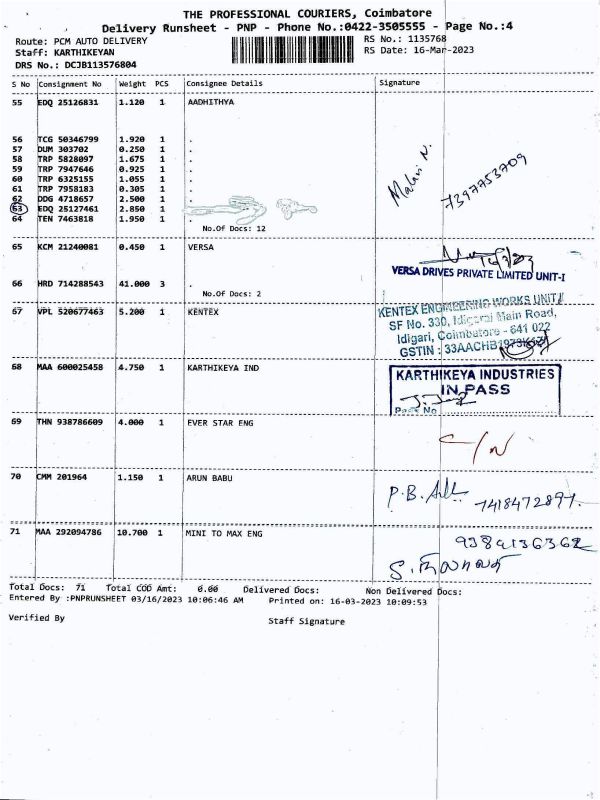 THE PROFESSIONAL COURIERS, Coimbatore
Delivery Runsheet - PNP - Phone No.:0422-3505555 - Page No.:4
Route: PCM AUTO DELIVERY
RS No.: 1135768
Staff: KARTHIKEYAN
RS Date: 16-Mar-2023
DRS No.: DCJB113576804
S No Consignment No Weight PCS Consignee Details Signature
55 EDQ 25126831 1.120 1 AADHITHYA
56 TCG 50346799 1.920 1 .
57 DUM 303702 0.250 1 .
58 TRP 5828097 1.675 1 .
59 TRP 7947646 0.925 1 .
60 TRP 6325155 1.055 1 .
61 TRP 7958183 0.305 1 .
62 DDG 4718657 2.500 1 .
63 EDQ 25127461 2.850 1
64 TEN 7463818 1.950 1 .
No.Of Docs: 12
7397753709
65 KCM 21240081 0.450 1 VERSA
VERSA DRIVES PRIVATE LIMITED UNIT-I
66 HRD 714288543 41.000 3 .
No.Of Docs: 2
67 VPL 520677463 5.200 1 KENTEX
KENTEX ENGINEERING WORKS UNIT II
SF No. 330, Idigarai Main Road,
Idigari, Coimbatore - 641 022
GSTIN : 33AACHB
68 MAA 600025458 4.750 1 KARTHIKEYA IND
KARTHIKEYA INDUSTRIES
IN PASS
Pass No
69 THN 938786609 4.000 1 EVER STAR ENG
C/N
70 CMM 201964 1.150 1 ARUN BABU
P.B. 7418472897.
71 MAA 292094786 10.700 1 MINI TO MAX ENG
9384136362
Total Docs: 71 Total COD Amt: 0.00 Delivered Docs: Non Delivered Docs:
Entered By :PNPRUNSHEET 03/16/2023 10:06:46 AM Printed on: 16-03-2023 10:09:53
Verified By Staff Signature